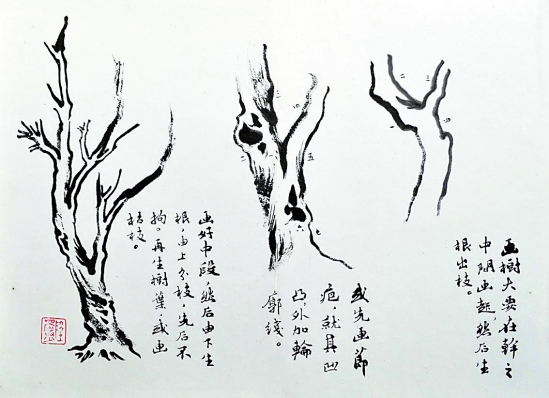 画樹大要在幹之
中間画起然后生
根出枝。
或先画節
疤就其凹
凸外加輪
廓綫。
画好中段，然后由下生
根，由上分枝，先后不
拘。再生樹葉，或画
枯枝。
一
二
三
四
五
六
七